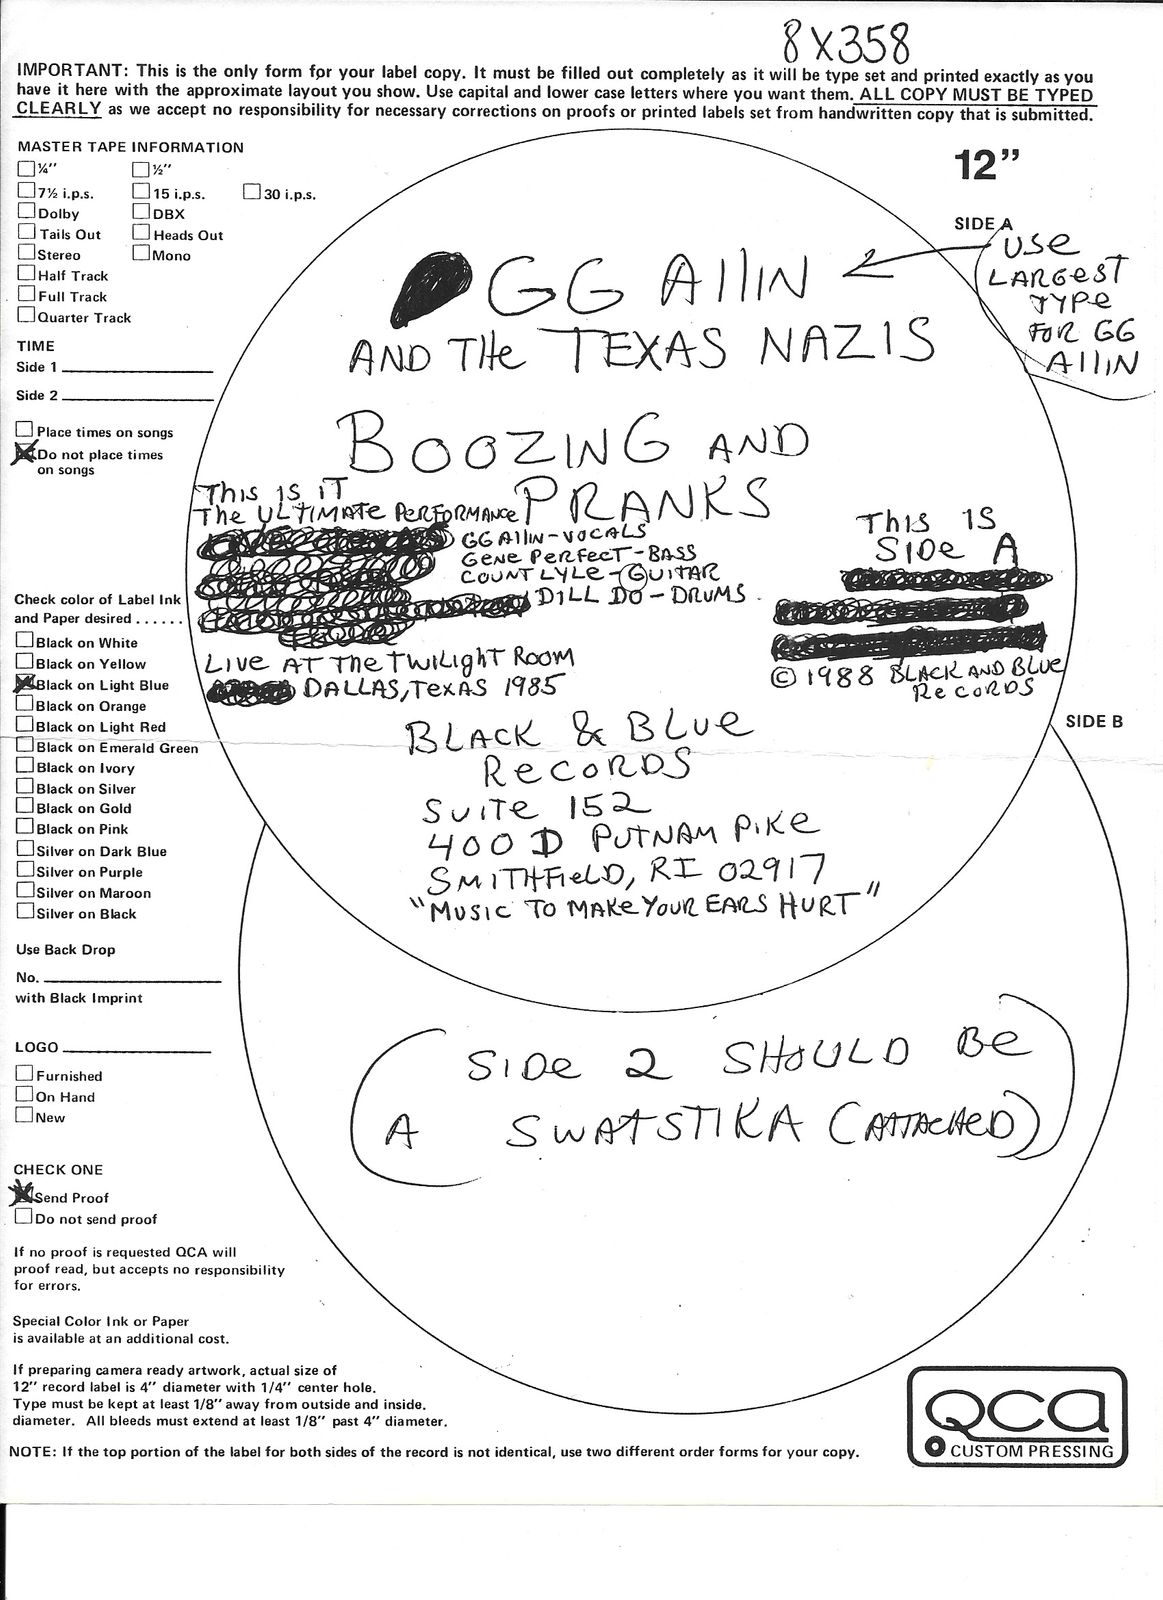 8X358
IMPORTANT: This is the only form for your label copy. It must be filled out completely as it will be type set and printed exactly as you
have it here with the approximate layout you show. Use capital and lower case letters where you want them. ALL COPY MUST BE TYPED
CLEARLY as we accept no responsibility for necessary corrections on proofs or printed labels set from handwritten copy that is submitted.
MASTER TAPE INFORMATION
¼" ½"
7½ i.p.s. 15 i.p.s. 30 i.p.s.
Dolby DBX
Tails Out Heads Out
Stereo Mono
Half Track
Full Track
Quarter Track
TIME
Side 1
Side 2
Place times on songs
Do not place times
on songs
Check color of Label Ink
and Paper desired . . . . . .
Black on White
Black on Yellow
Black on Light Blue
Black on Orange
Black on Light Red
Black on Emerald Green
Black on Ivory
Black on Silver
Black on Gold
Black on Pink
Silver on Dark Blue
Silver on Purple
Silver on Maroon
Silver on Black
Use Back Drop
No.
with Black Imprint
LOGO
Furnished
On Hand
New
CHECK ONE
Send Proof
Do not send proof
If no proof is requested QCA will
proof read, but accepts no responsibility
for errors.
Special Color Ink or Paper
is available at an additional cost.
If preparing camera ready artwork, actual size of
12" record label is 4" diameter with 1/4" center hole.
Type must be kept at least 1/8" away from outside and inside.
diameter. All bleeds must extend at least 1/8" past 4" diameter.
NOTE: If the top portion of the label for both sides of the record is not identical, use two different order forms for your copy.
12"
SIDE A
USe
LARGeST
TYPe
FOR GG
AllIN
GG AllIN
AND THe TEXAS NAZIS
BOOZING AND
PRANKS
THIS IS iT
THe ULTIMATe PeRFORMANCe
GG AllIN-VOCALS
GeNe PeRFecT-BASS
COUNT LYLe-GUITAR
DILL DO-DRUMS.
LIVe AT THe TWILIGHT ROOM
DALLAS, TeXAS 1985
THIS IS
SIDe A
© 1988 BLACK AND BLUe
ReCORDS
BLACK & BLUe
ReCORDS
SUITe 152
400 D PUTNAM PIKe
SMITHFIeLD, RI 02917
"MUSIC TO MAKe YOUR EARS HURT"
SIDE B
(SIDe 2 SHOULD Be
A SWATSTIKA (ATTACHeD))
QCA
CUSTOM PRESSING